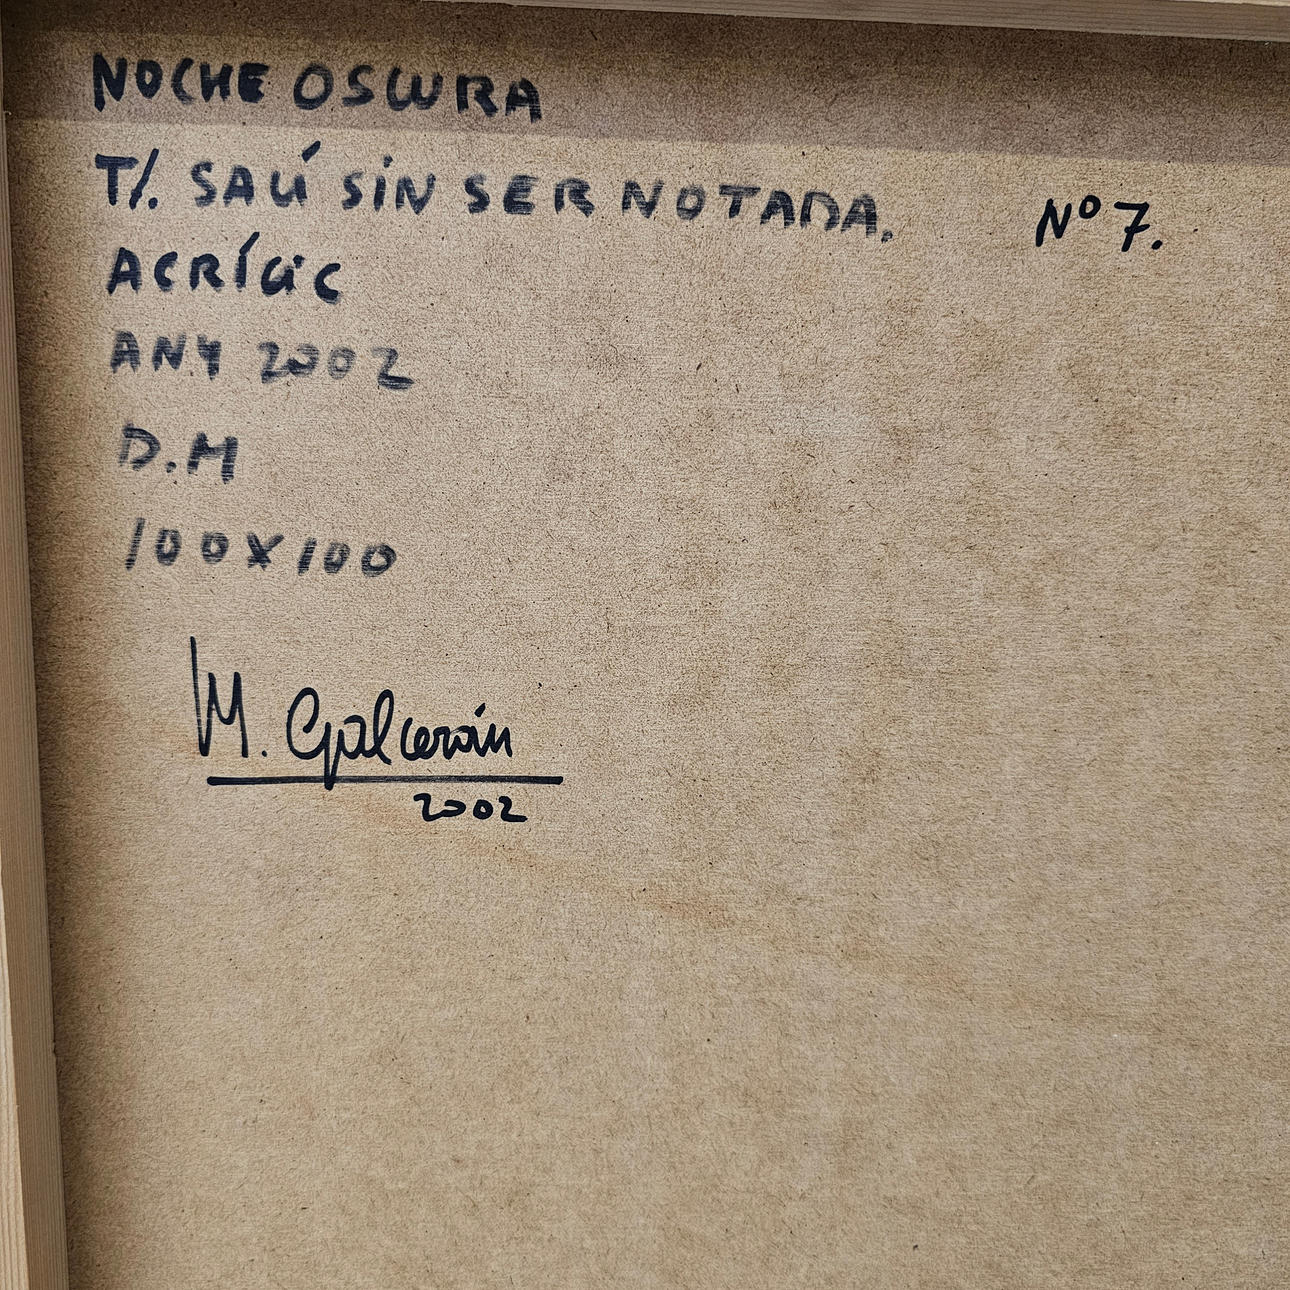 NOCHE OSCURA
T/. SALÍ SIN SER NOTADA. Nº 7.
ACRÍLIC
ANY 2002
D.M
100X100
M. Galcerán
2002